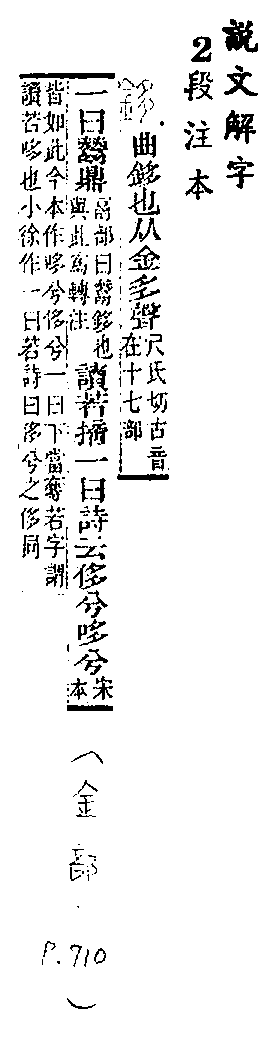 說文解字
2段注本
鉹 曲鉹也从金多聲尺氏切古音在十七部
一曰鬵鼎鬲部曰鬵鉹也與此爲轉注讀若摛一曰詩云侈兮哆兮宋本
皆如此今本作哆兮侈兮一曰下當奪若字謂
讀若哆也小徐作一曰若詩曰侈兮之侈同
(金部.P.710)